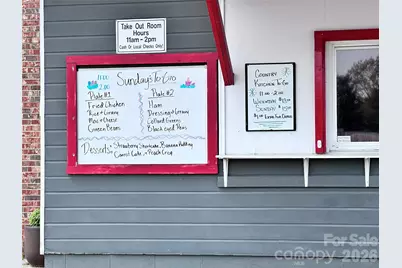 Take Out Room
Hours
11am - 2pm
Cash Or Local Checks Only
Sundays To Go
11:00
2:00
Plate #1
Fried Chicken
Rice & Gravy
Mac & Cheese
Green Beans
Plate #2
Ham
Dressing & Gravy
Collard Greens
Black eyed Peas
Desserts - Strawberry Shortcake, Banana Pudding
Carrot Cake, Peach Crisp
Country
Kitchen To Go
11:00 2:00
For Sale
canopy 2026